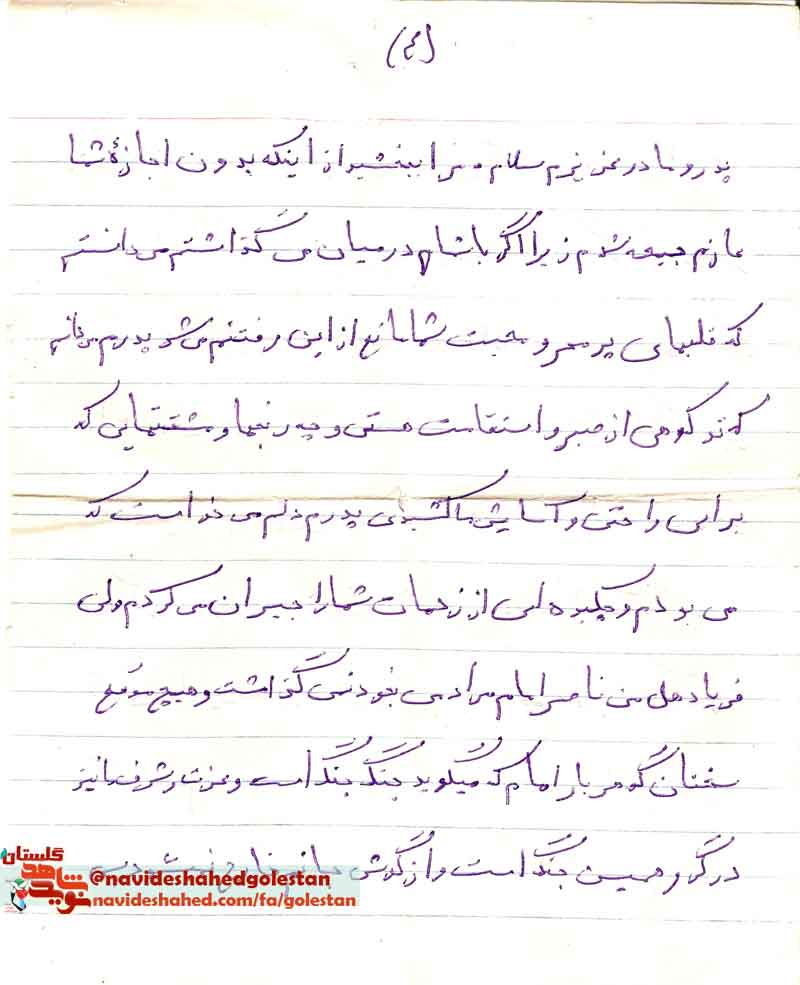 (۴)
پدر و مادر عزیزم سلام مرا ببخشید از اینکه بدون اجازهٔ شما
عازم جبهه شدم زیرا اگر با شما در میان می گذاشتم می دانستم
که قلبهای پر مهر و محبت شما مانع از این رفتنم می شود پدرم می دانم
که تو کوهی از صبر و استقامت هستی و چه رنجها و مشقتهایی که
برای راحتی و آسایش ما کشیدی پدرم دلم می خواست که
می بودم و چکیده ای از زحمات شما را جبران می کردم ولی
فریاد هل من ناصر امام مرا دمی بخود نمی گذاشت و هیچ موقع
سخنان گوهر بار امام که میگوید جنگ جنگ است و عزت و شرف ما نیز
در گرو همین جنگ است و از گوش
گلستان
نوید شاهد
@navideshahedgolestan
navideshahed.com/fa/golestan